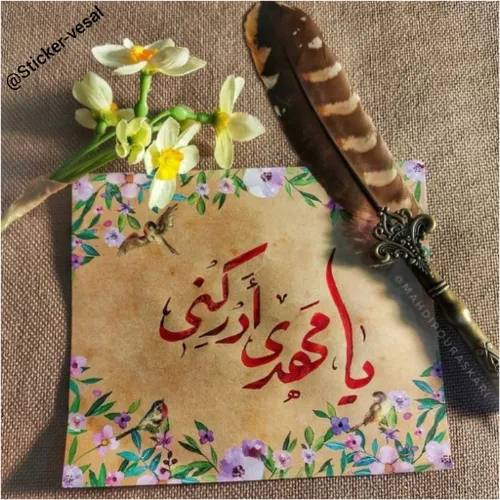 @Sticker-vesal
يا مَهدی أدرِکنی
@MAHDIPOURASKARI